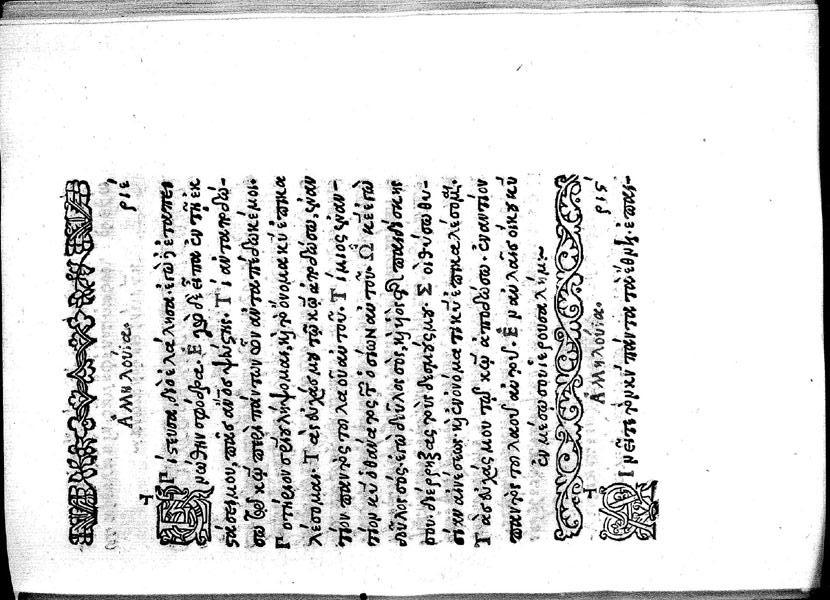 Ἀλληλούια. ριέ
Ἐπίστευσα, διὸ ἐλάλησα· ἐγὼ δὲ ἐταπει
νώθην σφόδρα. Ἐγὼ δὲ εἶπα ἐν τῇ ἐκ
στάσει μου, πᾶς ἄνθρωπος ψεύστης. Τί ἀνταποδώ-
σω τῷ κυρίῳ περὶ πάντων ὧν ἀνταπέδωκέ μοι.
Ποτήριον σωτηρίου λήψομαι, καὶ τὸ ὄνομα κυρίου ἐπικα
λέσομαι. Τὰς εὐχάς μου τῷ κυρίῳ ἀποδώσω, ἐναν
τίον παντὸς τοῦ λαοῦ αὐτοῦ. Τίμιος ἐναν-
τίον κυρίου ὁ θάνατος τῶν ὁσίων αὐτοῦ. Ὦ κύριε ἐγὼ
δοῦλος σὸς, ἐγὼ δοῦλος σὸς, καὶ υἱὸς τῆς παιδίσκης
σου. διέρρηξας τοὺς δεσμούς μου. Σοὶ θύσω θυ-
σίαν αἰνέσεως, καὶ ἐν ὀνόματι κυρίου ἐπικαλέσομαι.
Τὰς εὐχάς μου τῷ κυρίῳ ἀποδώσω. ἐναντίον
παντὸς τοῦ λαοῦ αὐτοῦ. Ἐν αὐλαῖς οἴκου κυρίου
ἐν μέσῳ σου ἱερουσαλήμ.
Ἀλληλούια. ρις
Αἰνεῖτε τὸν κύριον πάντα τὰ ἔθνη, ἐπαι-